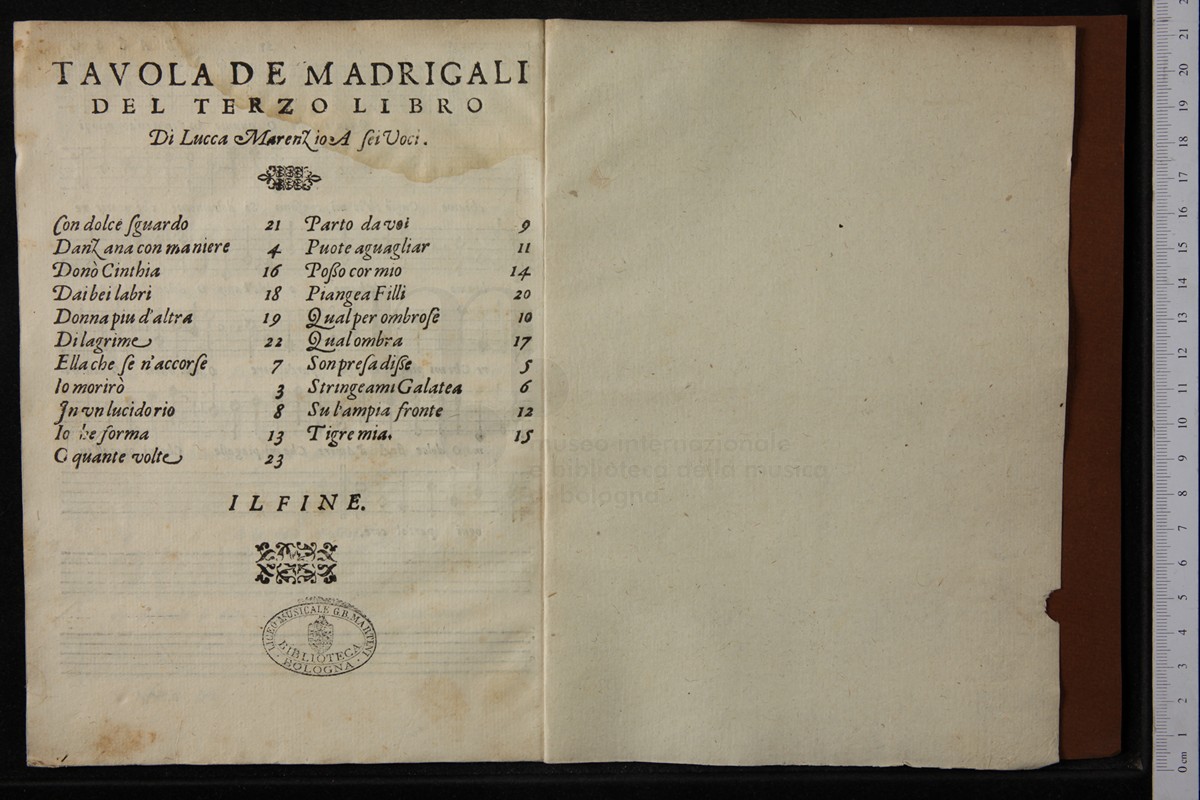 TAVOLA DE MADRIGALI
DEL TERZO LIBRO
Di Lucca Marenzio A sei Voci.
Con dolce sguardo 21
Danzana con maniere 4
Donò Cinthia 16
Dai bei labri 18
Donna piu d'altra 19
Di lagrime 22
Ella che se n'accorse 7
Io morirò 3
In vn lucido rio 8
Io he forma 13
O quante volte 23
Parto da voi 9
Puote aguagliar 11
Posso cor mio 14
Piangea Filli 20
Qual per ombrose 10
Qual ombra 17
Son presa disse 5
Stringeami Galatea 6
Su l'ampia fronte 12
Tigre mia. 15
IL FINE.
LICEO MUSICALE G.B. MARTINI
BIBLIOTECA
BOLOGNA
museo internazionale
e biblioteca della musica
di bologna
0 cm 1 2 3 4 5 6 7 8 9 10 11 12 13 14 15 16 17 18 19 20 21